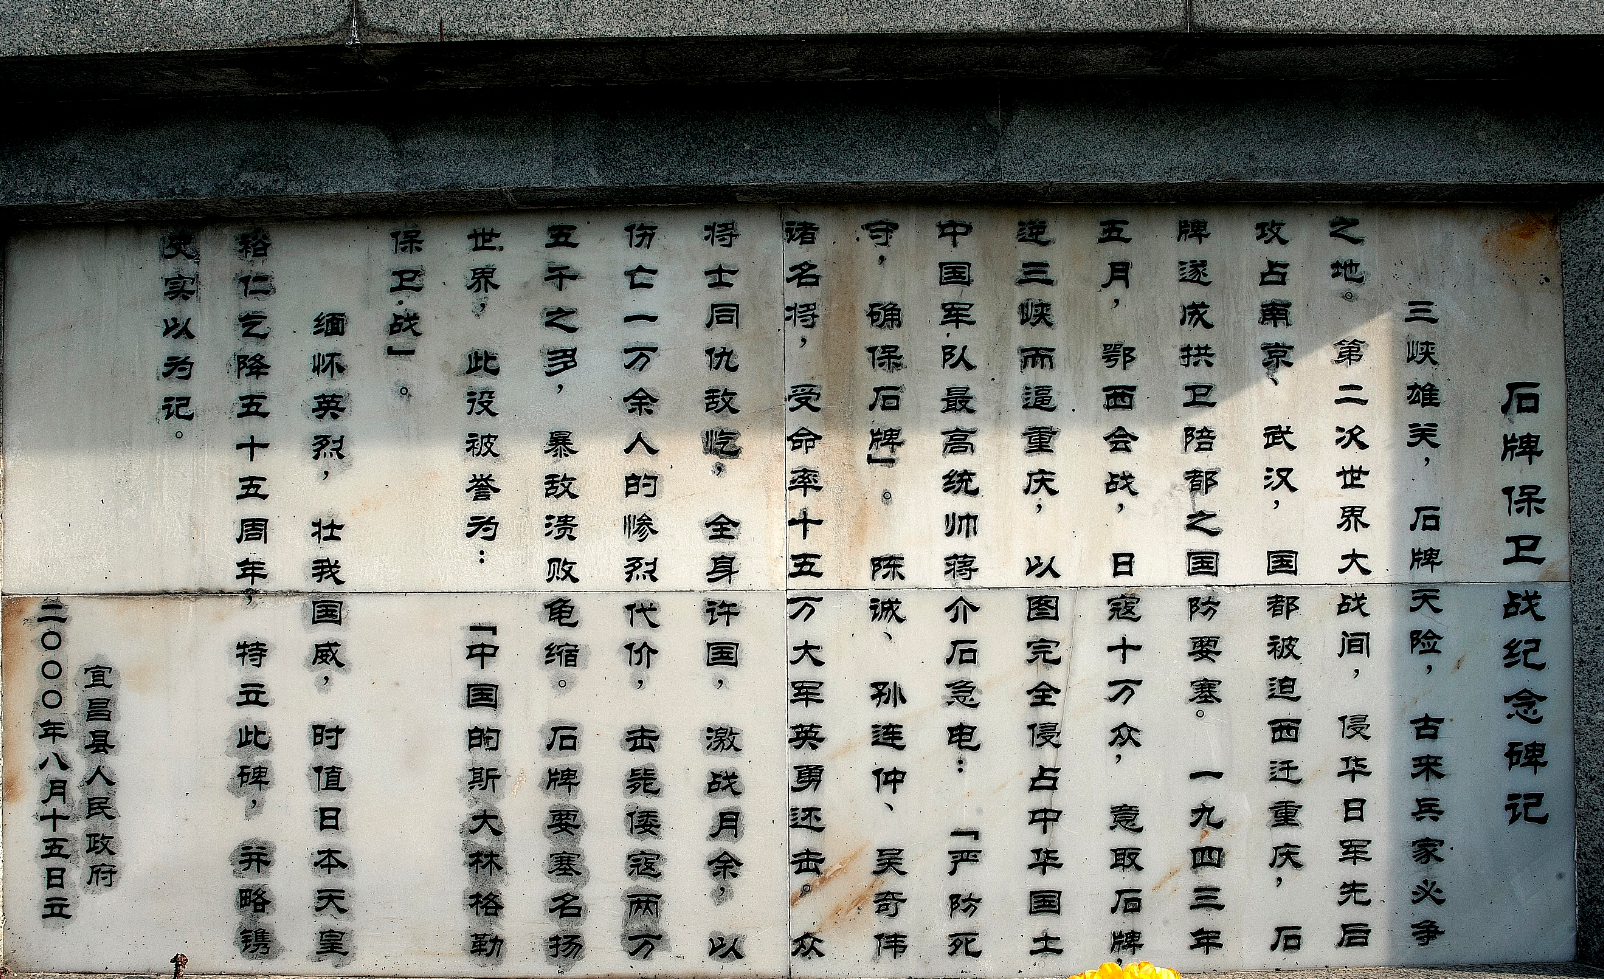 石牌保卫战纪念碑记
三峡雄关，石牌天险，古来兵家必争
之地。第二次世界大战间，侵华日军先后
攻占南京、武汉，国都被迫西迁重庆，石
牌遂成拱卫陪都之国防要塞。一九四三年
五月，鄂西会战，日寇十万众，意取石牌，
逆三峡而逼重庆，以图完全侵占中华国土
中国军队最高统帅蒋介石急电：「严防死
守，确保石牌」。陈诚、孙连仲、吴奇伟
诸名将，受命率十五万大军英勇还击。众
将士同仇敌忾，全身许国，激战月余，以
伤亡一万余人的惨烈代价，击毙倭寇两万
五千之多，暴敌溃败龟缩。石牌要塞名扬
世界，此役被誉为：「中国的斯大林格勒
保卫战」。
缅怀英烈，壮我国威，时值日本天皇
裕仁乞降五十五周年，特立此碑，并略镌
史实以为记。
宜昌县人民政府
二〇〇〇年八月十五日立